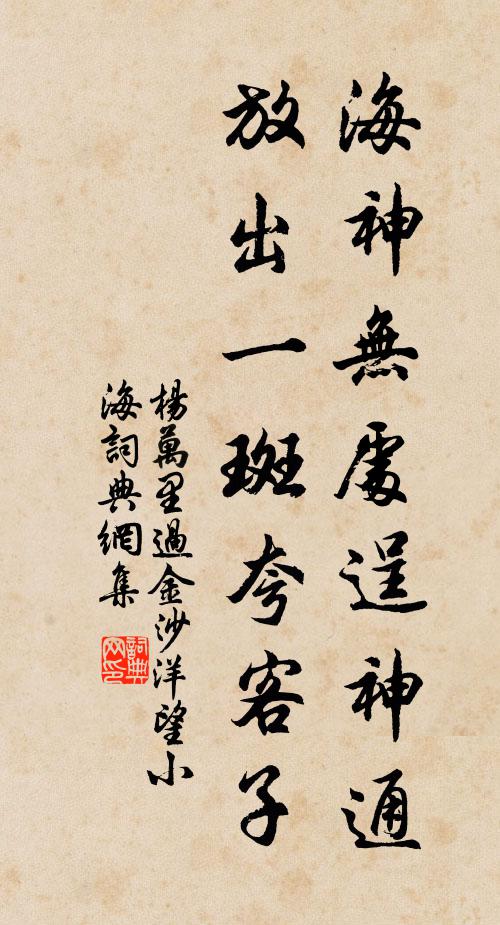 海神無處逞神通
放出一斑夸客子
楊萬里過金沙洋望小
海詞典網集
詞典
网印